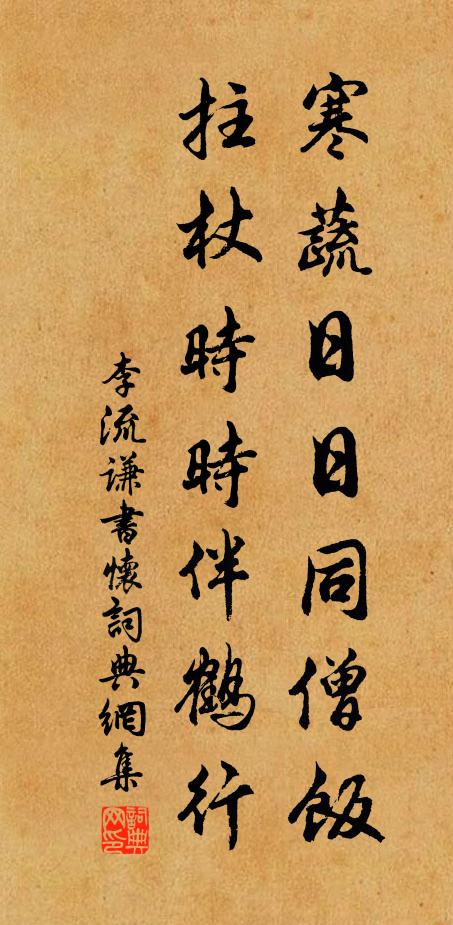 寒蔬日日同僧飯
拄杖時時伴鶴行
李流谦書懷詞典網集
詞典网印